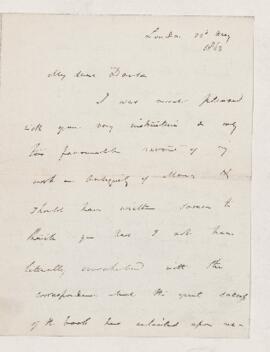 London 20th May
1863
My dear Dawson
I was much pleased
with your very instructive & only
too favourable review of my
work on Antiquity of Man &
should have written sooner to
thank you had I not been
literally overwhelmed with the
correspondence which the great
of the book has entailed upon me